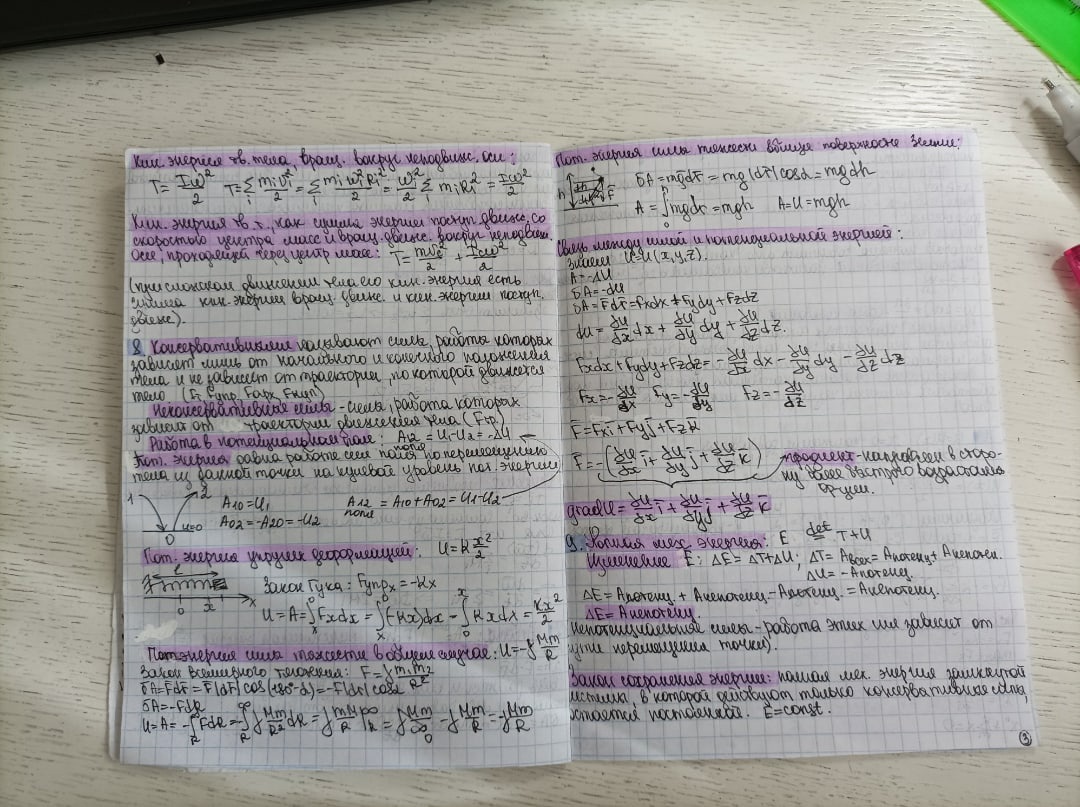 Кин. энергия тв. тела, вращ. вокруг неподвиж. оси:
T = Iω²/2 T = Σᵢ mᵢvᵢ²/2 = Σᵢ mᵢωᵢ²Rᵢ²/2 = ωᵢ²/2 Σᵢ mᵢRᵢ² = Iω²/2
Кин. энергия тв. т., как сумма энергии поступ. движ. со
скоростью центра масс и вращ. движ. вокруг неподвиж.
оси, проходящей через центр масс: T = mVc²/2 + Icω²/2
(при сложном движении тела его кин. энергия есть
сумма кин. энергии вращ. движ. и кин. энергии поступ.
движ.).
8. Консервативными называют силы, работа которых
зависит лишь от начального и конечного положения
тела и не зависит от траектории, по которой движется
тело (Fт, Fупр, Fарх, Fкул)
Неконсервативные силы - силы, работа которых
зависит от траектории движения тела (Fтр)
Работа в потенциальном поле: A12 поле = U1-U2 = -ΔU
Пот. энергия равна работе сил поля по перемещению
тела из данной точки на нулевой уровень пот. энергии
1 2 0 U=0
A10 = U1 A12 поле = A10 + A02 = U1-U2
A02 = -A20 = -U2
Пот. энергия упругих деформаций: U = k x²/2
Закон Гука: Fупрx = -kx
0 x x
U = A = ∫ₓ⁰ Fxdx = ∫ₓ⁰ (-kx)dx = ∫₀ˣ kxdx = kx²/2
Пот. энергия силы тяжести в общем случае: U = -γ Mm/R
Закон всемирного тяготения: F = γ m1m2/R²
δA = F̄dr̄ = |F̄||dr̄| cos(180°-α) = -F|dr| cosα
δA = -FdR
U = A = -∫FdR = -∫γ Mm/R² dR = γ mM/R |∞R = γ Mm/∞ - γ Mm/R = -γ Mm/R
Пот. энергия силы тяжести вблизи поверхности Земли:
h dh F̄
δA = mḡdr̄ = mg|dr̄|cosα = mgdh
A = ∫₀ʰ mgdr = mgh A = U = mgh
Связь между силой и потенциальной энергией:
Знаем U = U(x,y,z).
A = -ΔU
δA = -dU
δA = F̄dr̄ = Fxdx + Fydy + Fzdz
dU = ∂U/∂x dx + ∂U/∂y dy + ∂U/∂z dz.
Fxdx + Fydy + Fzdz = -∂U/∂x dx - ∂U/∂y dy - ∂U/∂z dz
Fx = -∂U/∂x Fy = -∂U/∂y Fz = -∂U/∂z
F̄ = Fxī + Fyj̄ + Fzk̄
F̄ = -(∂U/∂x ī + ∂U/∂y j̄ + ∂U/∂z k̄)
градиент - направлен в сторо-
ну более быстрого возрастания
ф-ции.
gradU = ∂U/∂x ī + ∂U/∂y j̄ + ∂U/∂z k̄
9. Полная мех. энергия: E def= T+U
Изменение E: ΔE = ΔT+ΔU, ΔT = Aвсех = Aпотенц. + Aнепотен.
ΔU = -Aпотенц.
ΔE = Aпотенц. + Aнепотенц. - Aпотенц. = Aнепотенц.
ΔE = Aнепотенц.
(непотенциальные силы - работа этих сил зависит от
пути перемещения точки).
Закон сохранения энергии: полная мех. энергия замкнутой
системы, в которой действуют только консервативные силы,
остается постоянной. E=const.
3